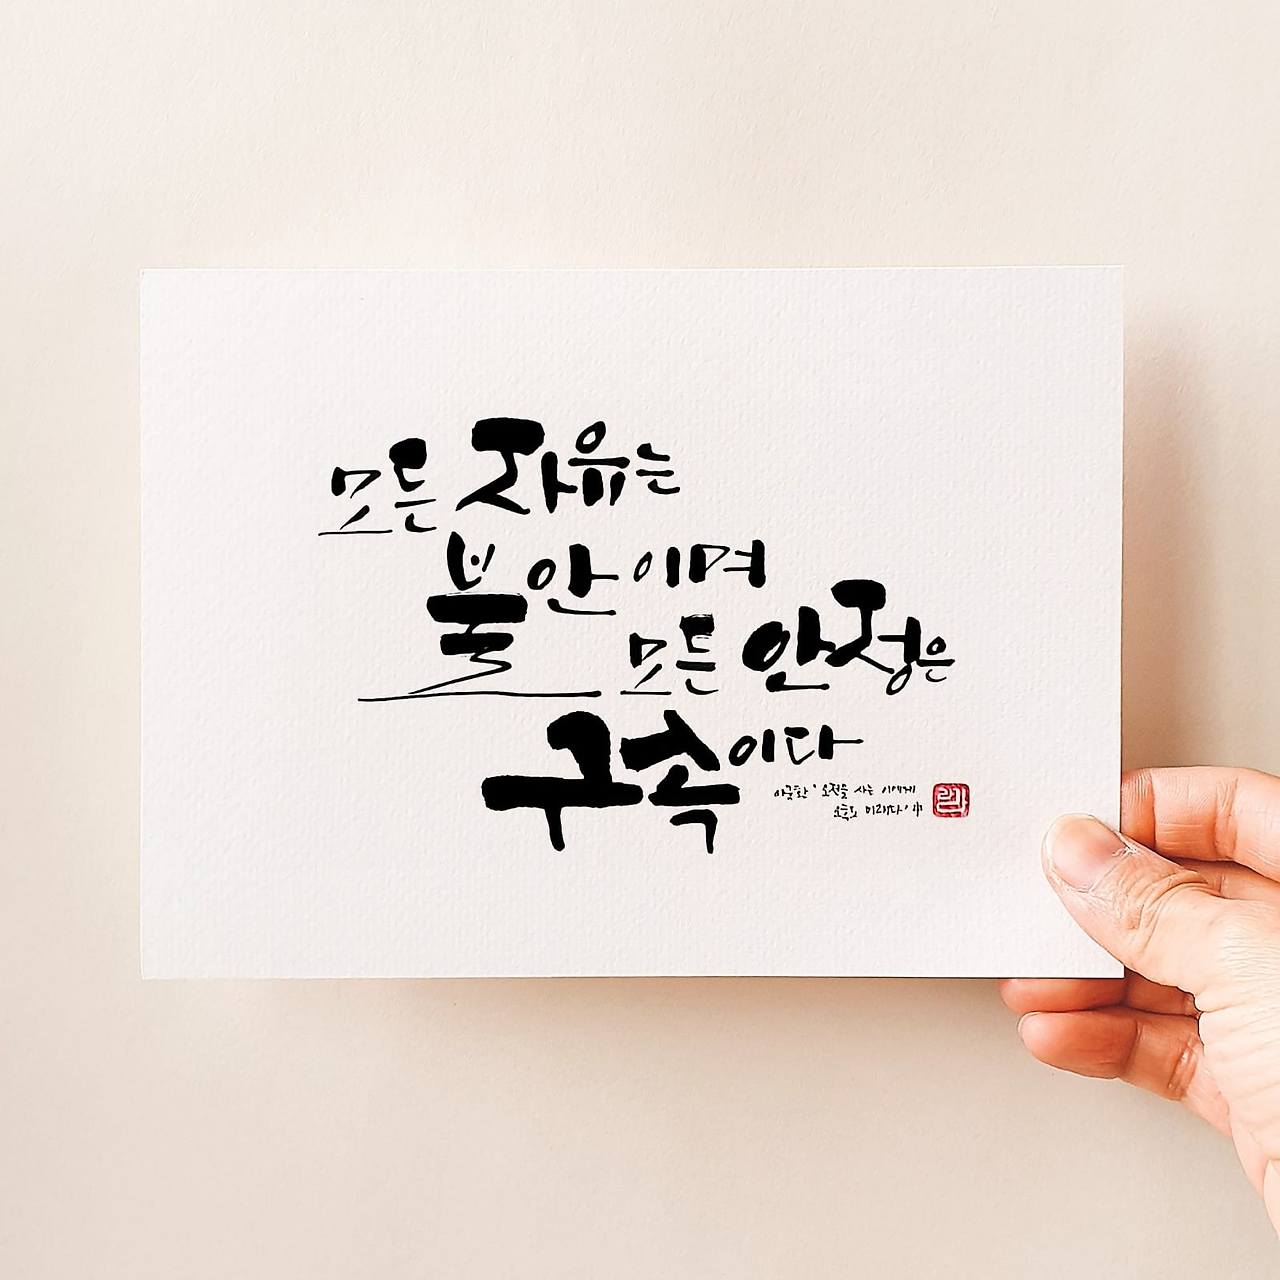 모든 자유는
불안이며
모든 안정은
구속이다
이국환 '오전을 사는 이에게
오후도 미래다' 中